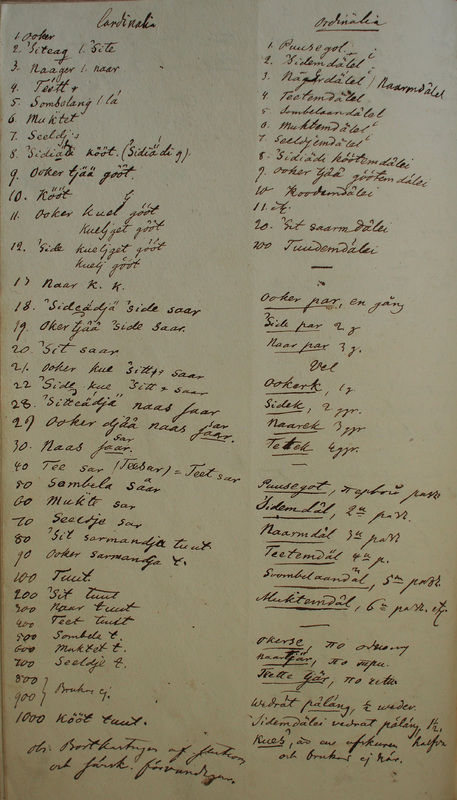 Cardinalia
1. Ooker
2. Siteag l. Site
3. Naager l. naar
4. Teett
5. Sombolang l. lá
6. Muktet
7. Seeldj
8. Sidiädi kööt. (Sidiädi g).
9. Ooker tjää gööt.
10. Kööt
11. Ooker kuel gööt
kueljget gööt
12. Side kueljget gööt
kuelj gööt
17 Naar k. k.
18. Sideädjä side saar
19. Oker tjää side saar.
20. Sit saar
21. Ooker kue sitt saar
22 Side kue sitt saar
28. Sitteädjä naas saar
29 Ooker djää naas saar.
30. Naas saar.
40 Tee sar (Teesar) = Teet sar
50 Sembela saar
60 Mukte sar
70 Seeldje sar
80 Sit sarmandja tuut
90 Ooker sarmandja t.
100 Tuut.
200 Sit tuut
300 Naar tuut
400 Teet tuut
500 Sombele t.
600 Muktet t.
700 Seeldje t.
800
900 } Brukas ej.
1000 Kööt tuut.
och
Ordinalia
1. Puusegot
2. Sidemdälei
3. Nagerdälei / Naarmdälei
4. Teetemdälei
5. Sombelaandälei
6. Muktemdälei
7. Seeldjemdälei
8. Sidiädi köötemdälei
9. Ooker tjää göötemdälei
10 Kootemdälei
11. etc.
20. Sit saarmdälei
100 Tuudemdälei
Ooker par, en gång
Side par 2 g
Naar par 3 g.
Vel
Ookerk, 1 g
Sidek, 2 ggr.
Naarek 3 ggr
Tettek 4 ggr.
Puusegot, первый разъ
Sidemdäl, 2й разъ.
Naarmdäl 3й разъ
Teetemdäl 4й р.
Soombelaandäl, 5й разъ.
Muktemdäl, 6й разъ. etc.
Okerse, по одному
naar gjäs, по три.
Tette gjäs, по четы
wedrat páláng, ½ weder.
Sidemdälei vedrat pálang, 1½.
Kues,
och brukas ej här.